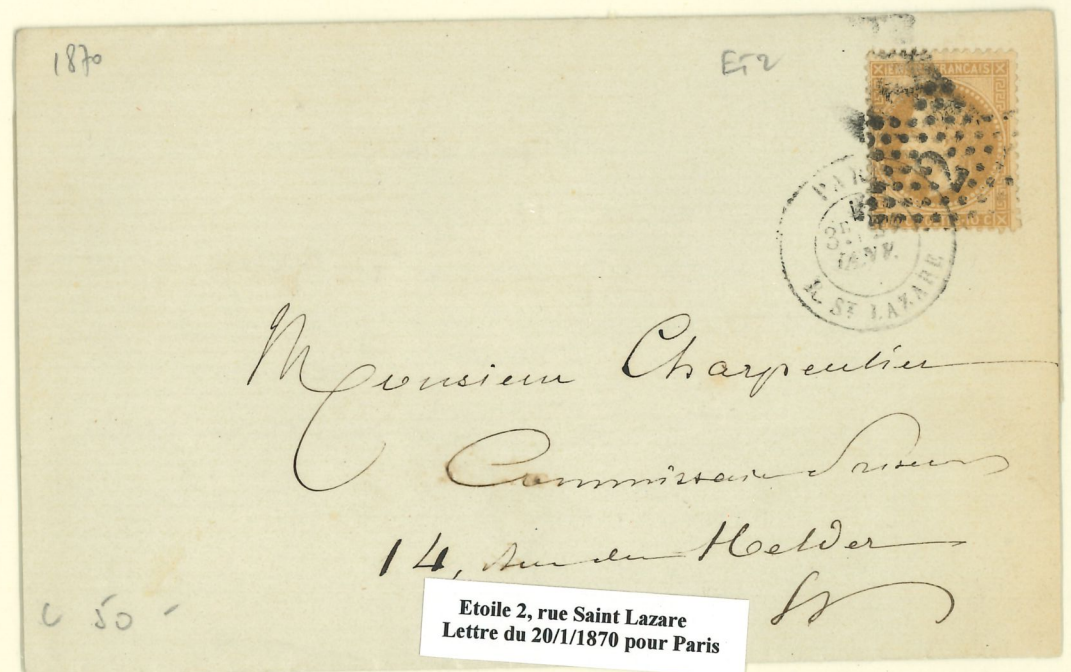 1870
ET 2
FRANCAIS
PAR
3E
JANV.
R. ST LAZARE
Monsieur Charpentier
Commissaire Priseur
14, rue du Helder
50 -
Etoile 2, rue Saint Lazare
Lettre du 20/1/1870 pour Paris